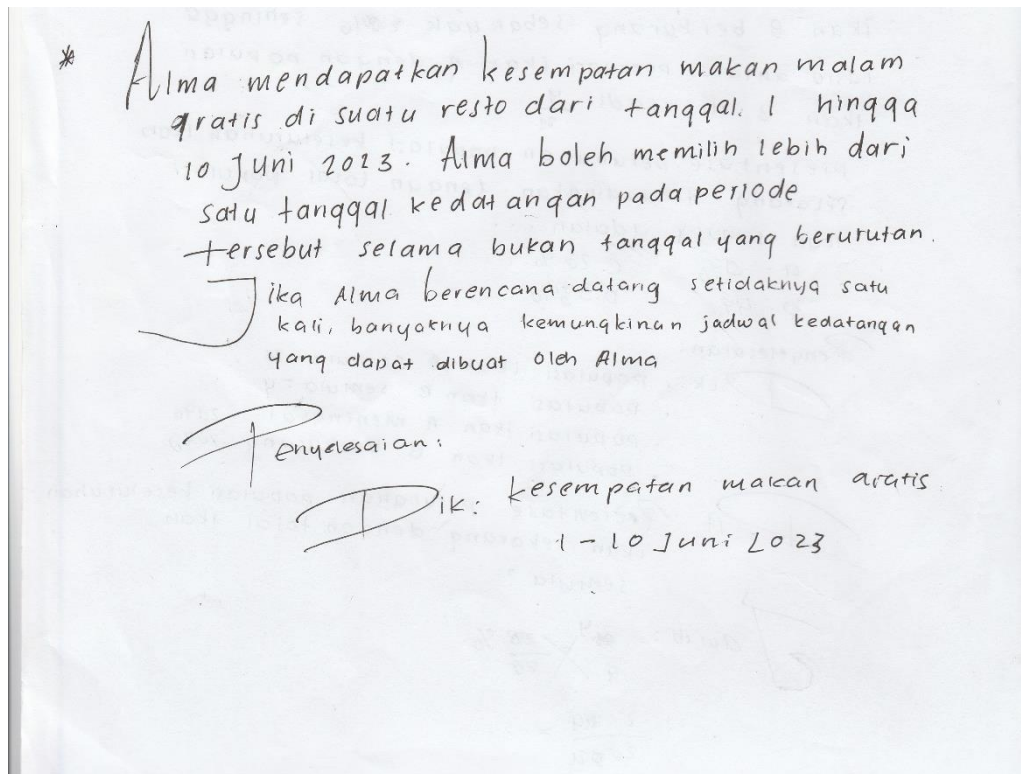 * Alma mendapatkan kesempatan makan malam
gratis di suatu resto dari tanggal. 1 hingga
10 Juni 2023. Alma boleh memilih lebih dari
satu tanggal kedatangan pada periode
tersebut selama bukan tanggal yang berurutan.
Jika Alma berencana datang setidaknya satu
kali, banyaknya kemungkinan jadwal kedatangan
yang dapat dibuat oleh Alma
Penyelesaian:
Dik: kesempatan makan gratis
1 - 10 Juni 2023